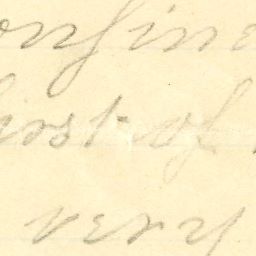 onfine
first of
very